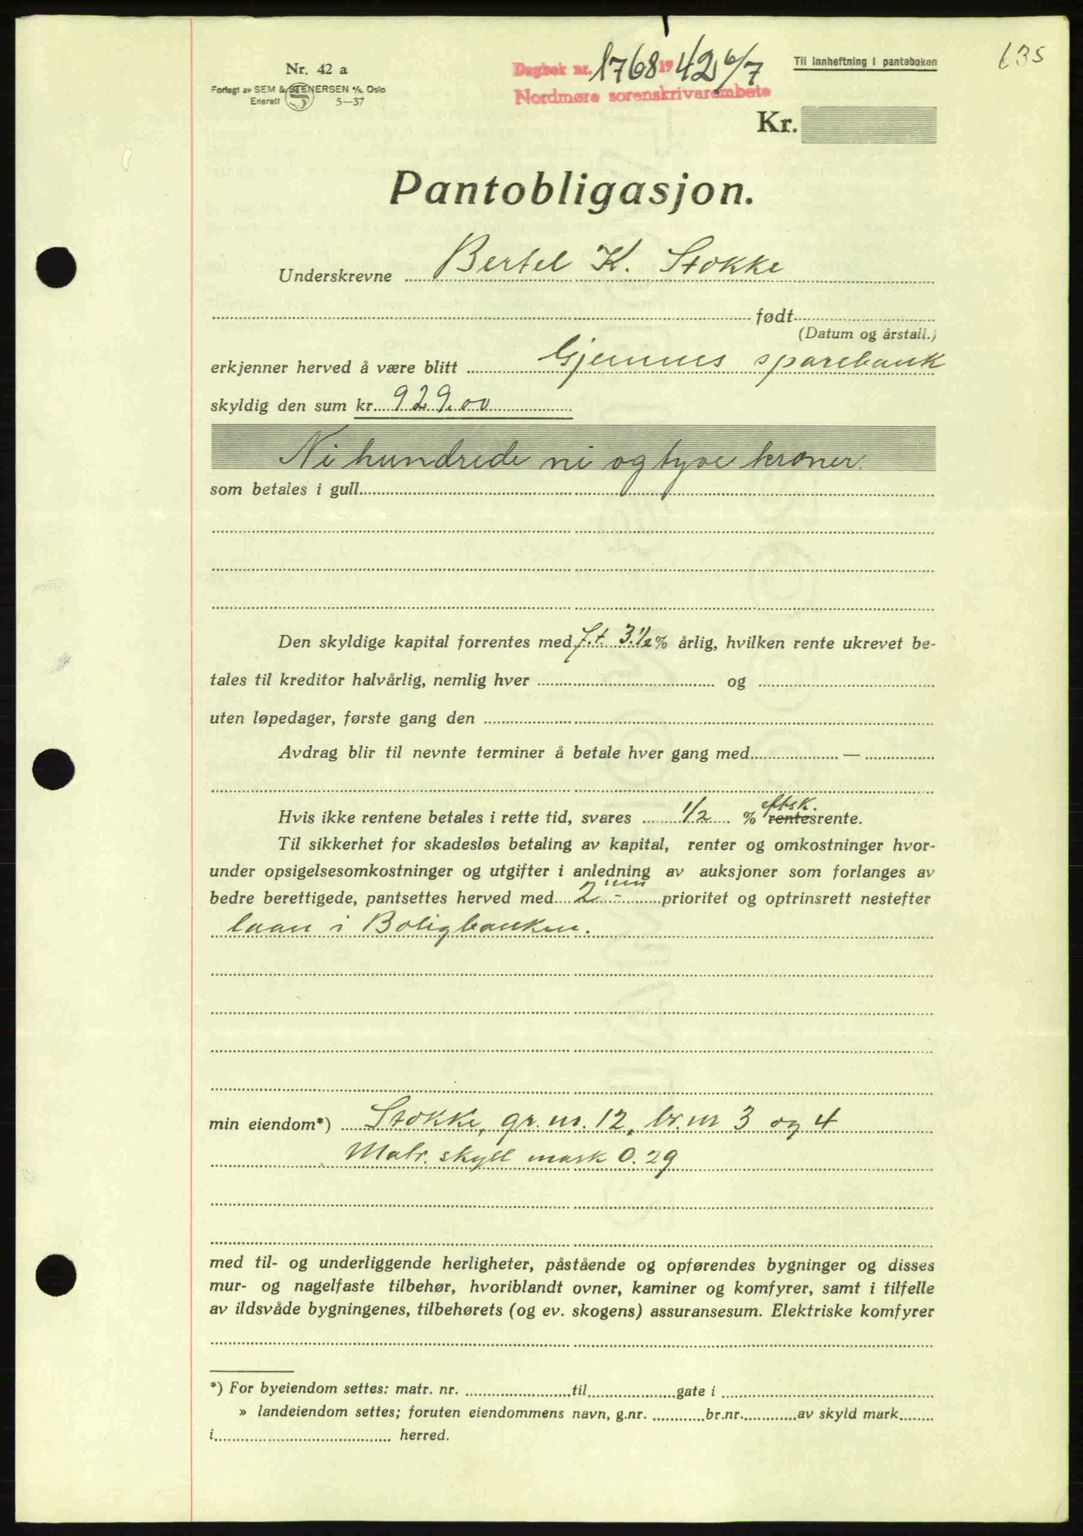 635
Nr. 42 a
Forlagt av SEM & STENERSEN A/S, Oslo
Enerett 5—37
Dagbok nr. 1768 1942 6/7
Nordmøre sorenskrivarembete
Til innheftning i panteboken
Kr.
Pantobligasjon.
Underskrevne Bertel K. Stokke
født
(Datum og årstall.)
erkjenner herved å være blitt Gjemnes sparebank
skyldig den sum kr. 929.00
Ni hundrede ni og tyve kroner.
som betales i gull
Den skyldige kapital forrentes med f.t. 3.1/2 % årlig, hvilken rente ukrevet be-
tales til kreditor halvårlig, nemlig hver og
uten løpedager, første gang den
Avdrag blir til nevnte terminer å betale hver gang med —
Hvis ikke rentene betales i rette tid, svares 1/2 % eftsk. rentesrente.
Til sikkerhet for skadesløs betaling av kapital, renter og omkostninger hvor-
under opsigelsesomkostninger og utgifter i anledning av auksjoner som forlanges av
bedre berettigede, pantsettes herved med 2 prioritet og optrinsrett nestefter
laan i Boligbanken.
min eiendom*) Stokke, gr. nr. 12, br. nr 3 og 4
Matr. skyll mark 0.29
med til- og underliggende herligheter, påstående og opførendes bygninger og disses
mur- og nagelfaste tilbehør, hvoriblandt ovner, kaminer og komfyrer, samt i tilfelle
av ildsvåde bygningenes, tilbehørets (og ev. skogens) assuransesum. Elektriske komfyrer
*) For byeiendom settes: matr. nr. til gate i
» landeiendom settes; foruten eiendommens navn, g.nr. br.nr. av skyld mark
i herred.